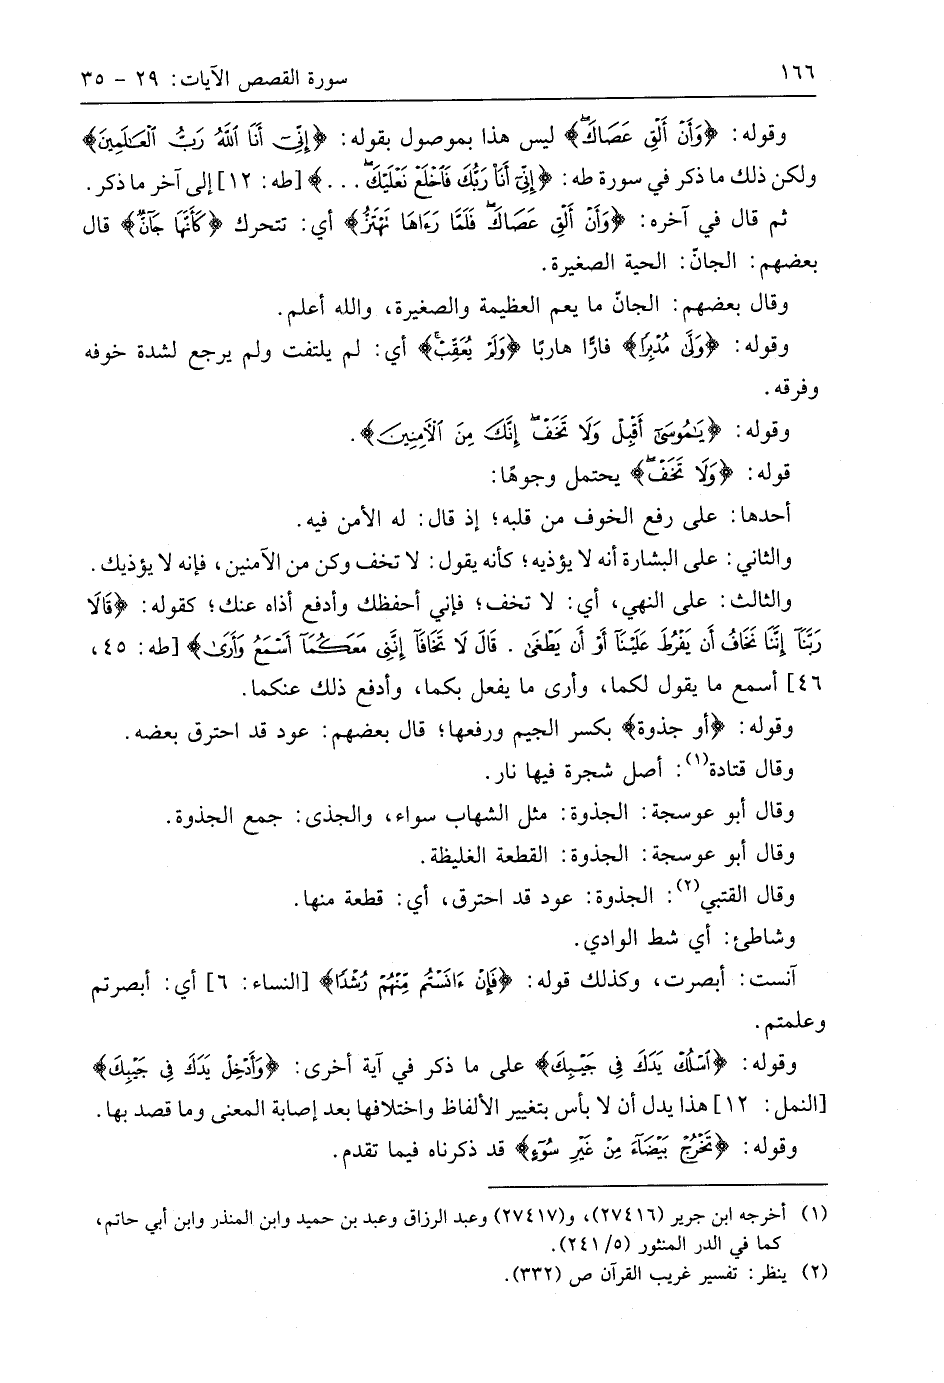 ١٦٦
سورة القصص الآيات: ٢٩ - ٣٥
وقوله: ﴿وَأَنْ أَلْقِ عَصَاكَۖ﴾ ليس هذا بموصول بقوله: ﴿إِنِّيٓ أَنَا ٱللَّهُ رَبُّ ٱلْعَٰلَمِينَ﴾
ولكن ذلك ما ذكر في سورة طه: ﴿إِنِّيٓ أَنَا۠ رَبُّكَ فَٱخْلَعْ نَعْلَيْكَۖ . . .﴾ [طه: ١٢] إلى آخر ما ذكر.
ثم قال في آخره: ﴿وَأَنْ أَلْقِ عَصَاكَۖ فَلَمَّا رَءَاهَا تَهْتَزُّ﴾ أي: تتحرك ﴿كَأَنَّهَا جَآنٌّ﴾ قال
بعضهم: الجانّ: الحية الصغيرة.
وقال بعضهم: الجانّ ما يعم العظيمة والصغيرة، والله أعلم.
وقوله: ﴿وَلَّىٰ مُدْبِرًا﴾ فارًّا هاربًا ﴿وَلَمْ يُعَقِّبْۚ﴾ أي: لم يلتفت ولم يرجع لشدة خوفه
وفرقه.
وقوله: ﴿يَٰمُوسَىٰٓ أَقْبِلْ وَلَا تَخَفْۖ إِنَّكَ مِنَ ٱلْأٓمِنِينَ﴾.
قوله: ﴿وَلَا تَخَفْۖ﴾ يحتمل وجوهًا:
أحدها: على رفع الخوف من قلبه؛ إذ قال: له الأمن فيه.
والثاني: على البشارة أنه لا يؤذيه؛ كأنه يقول: لا تخف وكن من الآمنين، فإنه لا يؤذيك.
والثالث: على النهي، أي: لا تخف؛ فإني أحفظك وأدفع أذاه عنك؛ كقوله: ﴿قَالَا
رَبَّنَآ إِنَّنَا نَخَافُ أَن يَفْرُطَ عَلَيْنَآ أَوْ أَن يَطْغَىٰ . قَالَ لَا تَخَافَآ إِنَّنِي مَعَكُمَآ أَسْمَعُ وَأَرَىٰ﴾ [طه: ٤٥،
٤٦] أسمع ما يقول لكما، وأرى ما يفعل بكما، وأدفع ذلك عنكما.
وقوله: ﴿أو جذوة﴾ بكسر الجيم ورفعها؛ قال بعضهم: عود قد احترق بعضه.
وقال قتادة(١): أصل شجرة فيها نار.
وقال أبو عوسجة: الجذوة: مثل الشهاب سواء، والجذى: جمع الجذوة.
وقال أبو عوسجة: الجذوة: القطعة الغليظة.
وقال القتبي(٢): الجذوة: عود قد احترق، أي: قطعة منها.
وشاطئ: أي شط الوادي.
آنست: أبصرت، وكذلك قوله: ﴿فَإِنْ ءَانَسْتُم مِّنْهُمْ رُشْدًا﴾ [النساء: ٦] أي: أبصرتم
وعلمتم.
وقوله: ﴿ٱسْلُكْ يَدَكَ فِي جَيْبِكَ﴾ على ما ذكر في آية أخرى: ﴿وَأَدْخِلْ يَدَكَ فِي جَيْبِكَ﴾
[النمل: ١٢] هذا يدل أن لا بأس بتغيير الألفاظ واختلافها بعد إصابة المعنى وما قصد بها.
وقوله: ﴿تَخْرُجْ بَيْضَآءَ مِنْ غَيْرِ سُوٓءٍ﴾ قد ذكرناه فيما تقدم.
(١) أخرجه ابن جرير (٢٧٤١٦)، و(٢٧٤١٧) وعبد الرزاق وعبد بن حميد وابن المنذر وابن أبي حاتم،
كما في الدر المنثور (٥/ ٢٤١).
(٢) ينظر: تفسير غريب القرآن ص (٣٣٢).